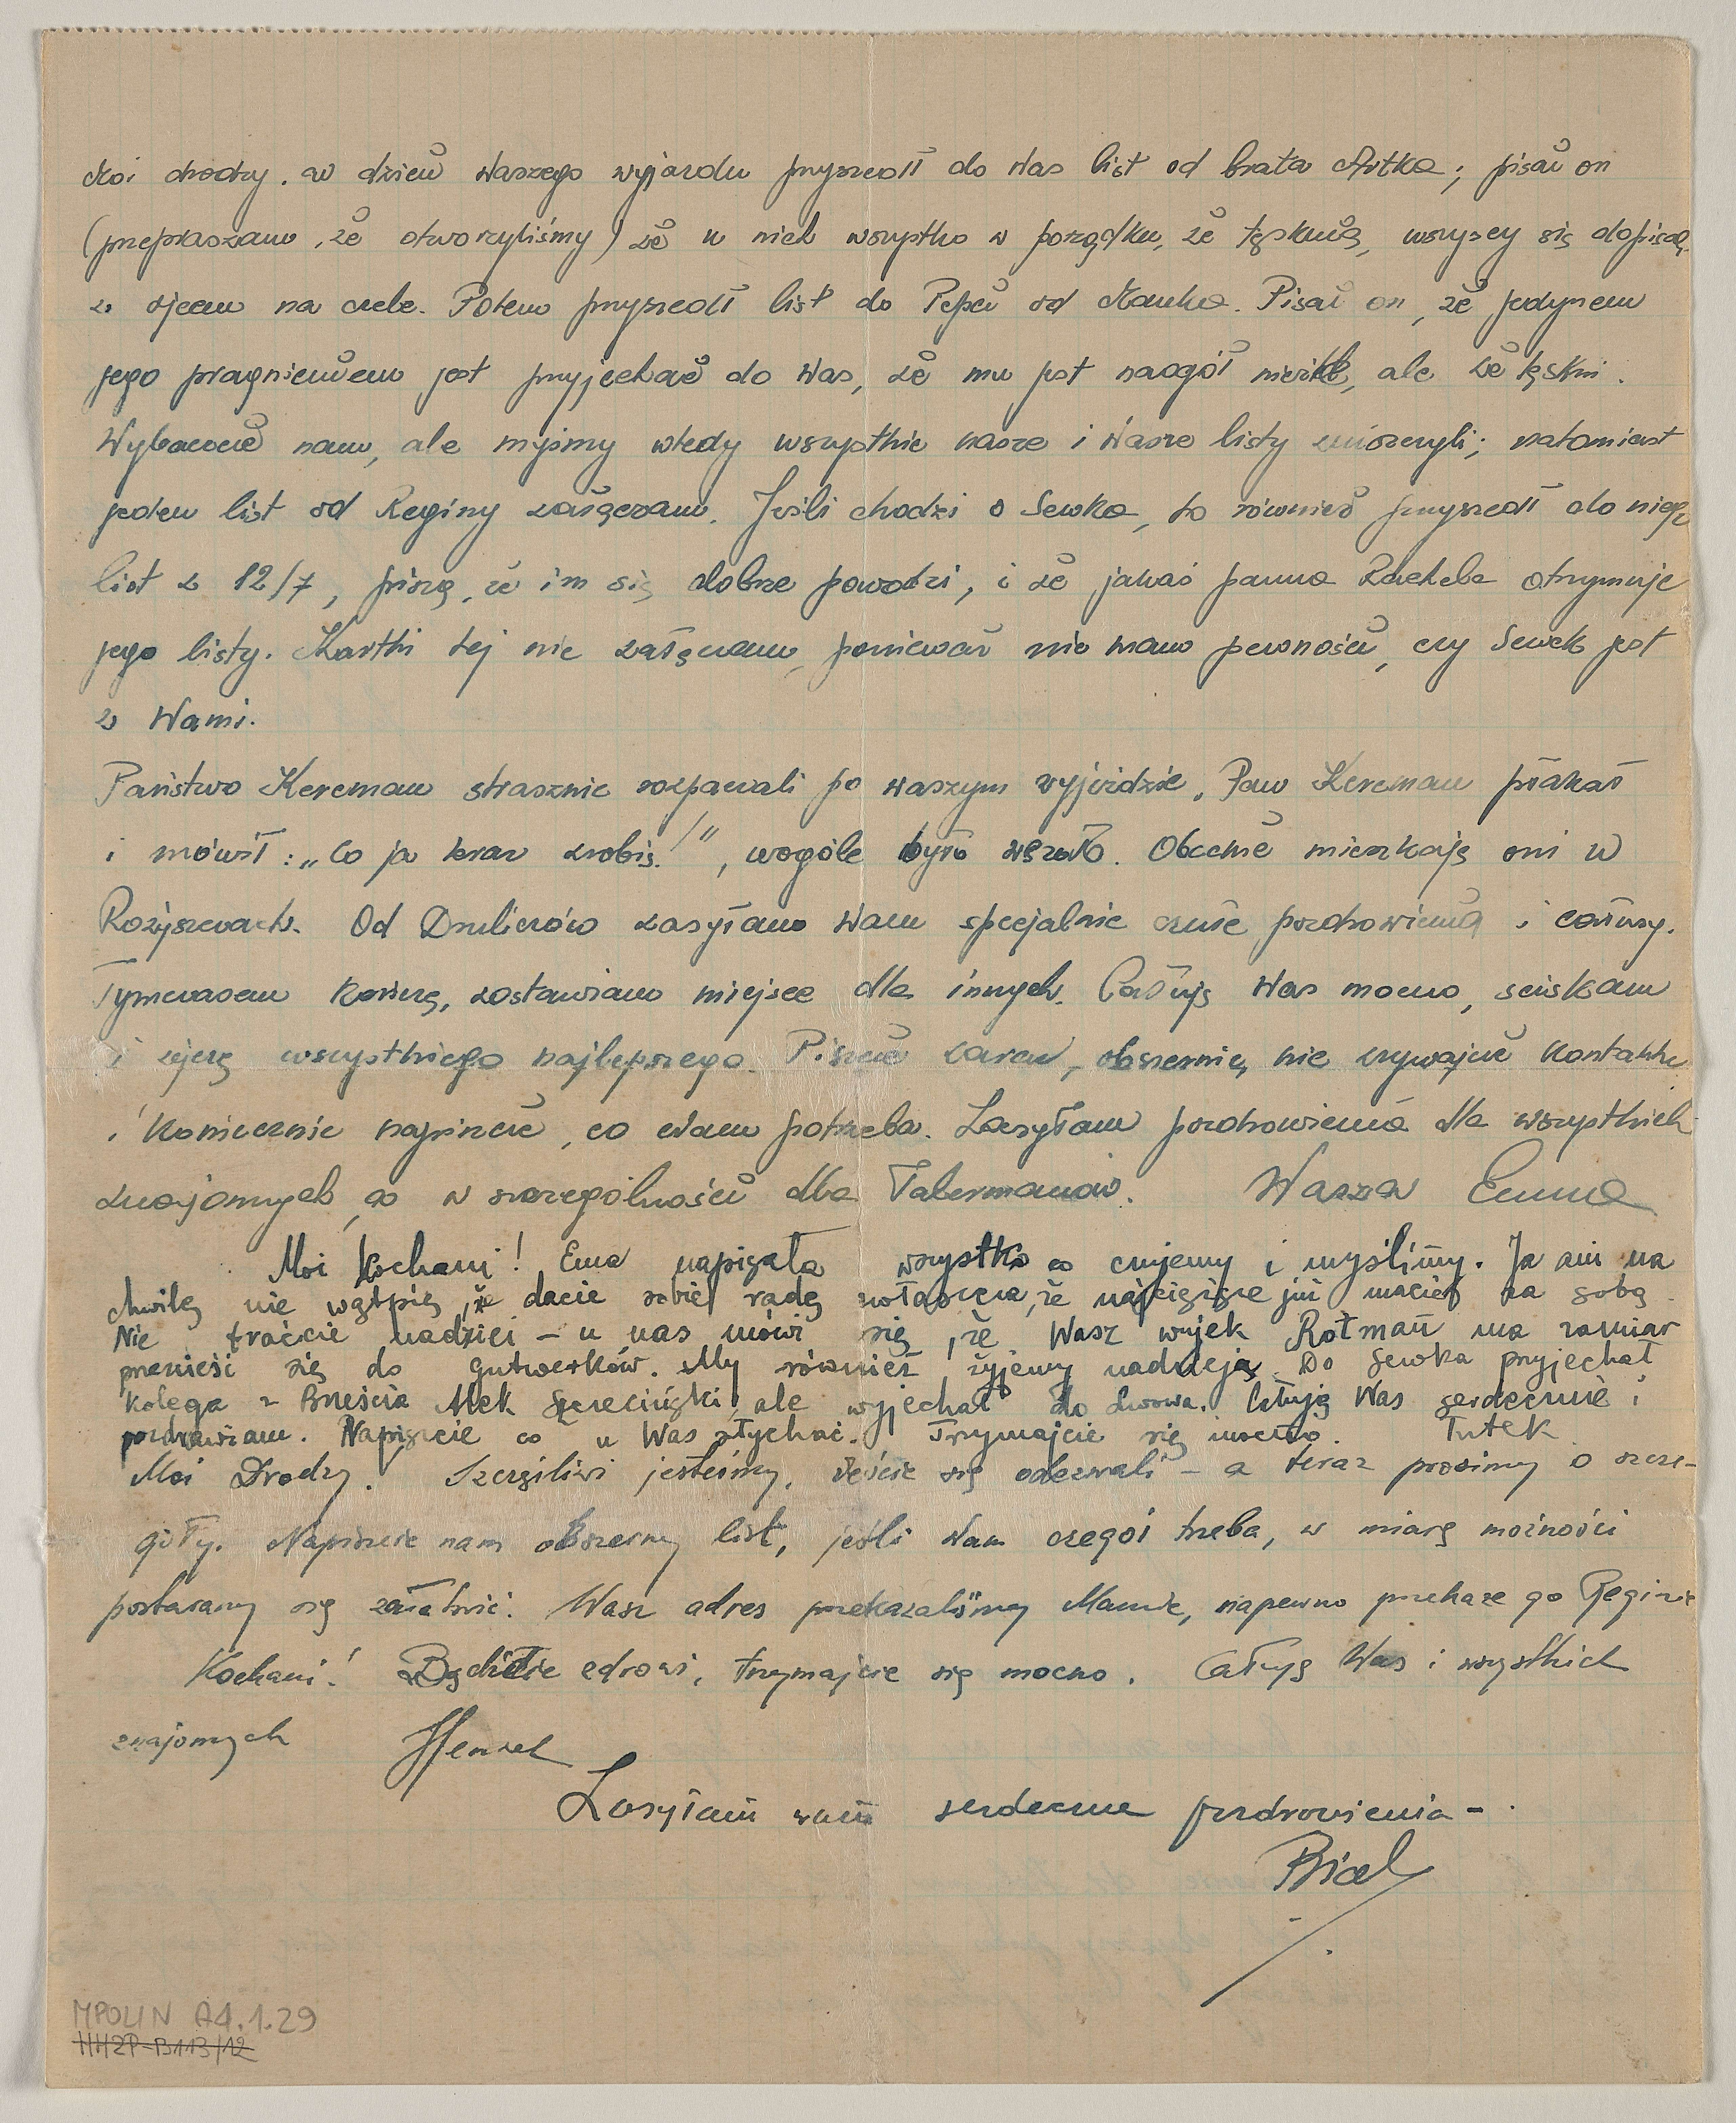 Moi drodzy. W dzień waszego wyjazdu przyszedł do Was list od brata Artka; pisał on
(przepraszam, że otworzyliśmy) że u nich wszystko w porządku, że tęsknią, wszyscy się dopisali
z ojcem na czele. Potem przyszedł list do Pepci od Manka. Pisał on, że jedynem
jego pragnieniem jest przyjechać do Was, że mu jest naogół nieźle, ale że tęskni.
Wybaczcie nam, ale myśmy wtedy wszystkie nasze i Wasze listy zniszczyli; natomiast
jeden list od Reginy załączam. Jeśli chodzi o Sewka, to również przyszedł do niego
list z 12/7, piszą, że im się dobrze powodzi, i że jakaś panna Rachela otrzymuje
jego listy. Kartki tej nie załączam, ponieważ nie mam pewności, czy Sewek jest
z Wami.
Państwo Kereman strasznie rozpaczali po waszym wyjeździe. Pan Kereman płakał
i mówił: „Co ja teraz zrobię!", wogóle było wesoło. Obecnie mieszkają oni w
Rożyszczach. Od Drulierów zasyłam Wam specjalnie czułe pozdrowienia i całusy.
Tymczasem kończę, zostawiam miejsce dla innych. Całuję Was mocno, ściskam
i życzę wszystkiego najlepszego. Piszcie zaraz, obszernie, nie zrywajcie kontaktu
i koniecznie napiszcie, co Wam potrzeba. Zasyłam pozdrowienia dla wszystkich
znajomych, a w szczególności dla Tabermanów. Wasza Emma
Moi kochani! Ema napisała wszystko co czujemy i myślimy. Ja ani na
chwilę nie wątpię, że dacie sobie radę zwłaszcza, że najcięższe już macie za sobą.
Nie traćcie nadziei – u nas mówi się, że Wasz wujek Rotman ma zamiar
przenieść się do Gutwerków. My również żyjemy nadzieją. Do Sewka przyjechał
kolega z Brześcia Mek Szereciński, ale wyjechał do Lwowa. Całuję Was serdecznie i
pozdrawiam. Napiszcie co u Was słychać. Trzymajcie się mocno. Tutek
Moi Drodzy! Szczęśliwi jesteśmy, żeście się odezwali – a teraz prosimy o szcze-
góły. Napiszcie nam obszerny list, jeśli Wam czegoś trzeba, w miarę możności
postaramy się załatwić. Wasz adres przekazaliśmy Mamie, napewno przekaże go Reginie
Kochani! Bądźcie zdrowi, trzymajcie się mocno. Całuję Was i wszystkich
znajomych Henzel
Zasyłam wam serdeczne pozdrowienia –.
Bial
MPOLIN A4.1.29
HH2P-B113/12